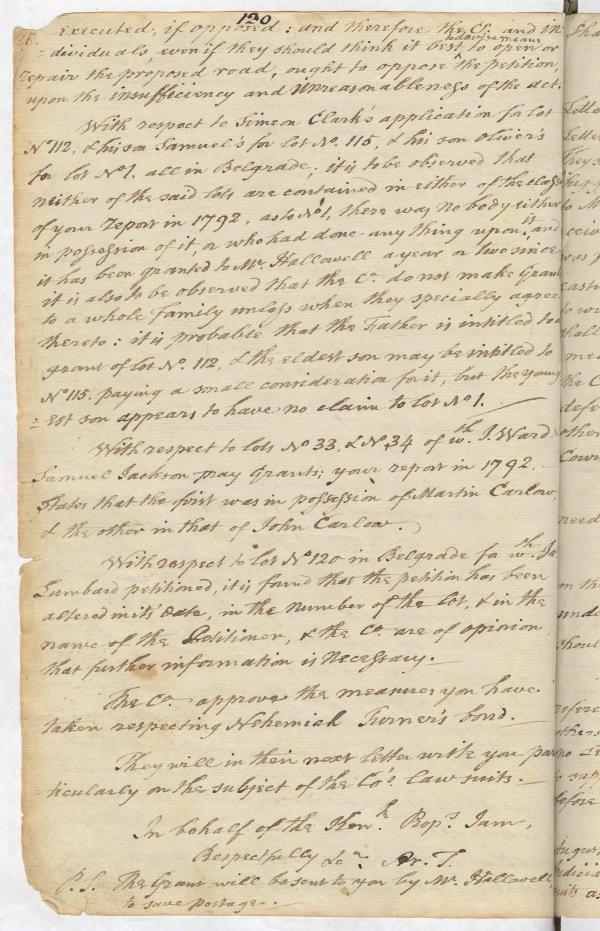 120
executed, if opposed: and therefore the Co. and in
=dividuals, even if they should think it best to open or
repair the proposed road, ought to oppose the petition,
upon the insufficiency and unreasonableness of the act.
With respect to Simeon Clark's application for lot
No 112, & his son Samuel's for lot No. 115, & his son Oliver's
for lot No 1. all in Belgrade, it is to be observed that
neither of the said lots are contained in either of the class
of your report in 1792, as to No 1, there was no body either
in possession of it, or who had done any thing upon it, and
it has been granted to Mr. Hallowell a year or two since.
it is also to be observed that the Co. do not make Grants
to a whole family unless when they specially agree
thereto: it is probable that the Father is intitled to a
grant of lot No. 112, & the eldest son may be intitled to
No 115. paying a small consideration for it, but the young
=est son appears to have no claim to lot No 1.
With respect to lots No 33, & No 34 of wch. J. Ward
Samuel Jackson pray Grants; your report in 1792.
States that the first was in possession of Martin Carlow,
& the other in that of John Carlow.
With respect to lot No 120 in Belgrade for wch. Ja
Lumbard petitioned, it is found that the petition has been
altered in its date, in the number of the lot, & in the
name of the Petitioner, & the Co. are of opinion
that further information is necessary.
The Co. approve the measures you have
taken respecting Nehemiah Turner's bond.
They will in their next letter write you par
=ticularly on the subject of the Co's law suits.
In behalf of the Honl. Props. I am,
Respectfully &c. Ar. T.
P.S. The Grant will be sent to you by Mr. Hallowell,
to save postage.